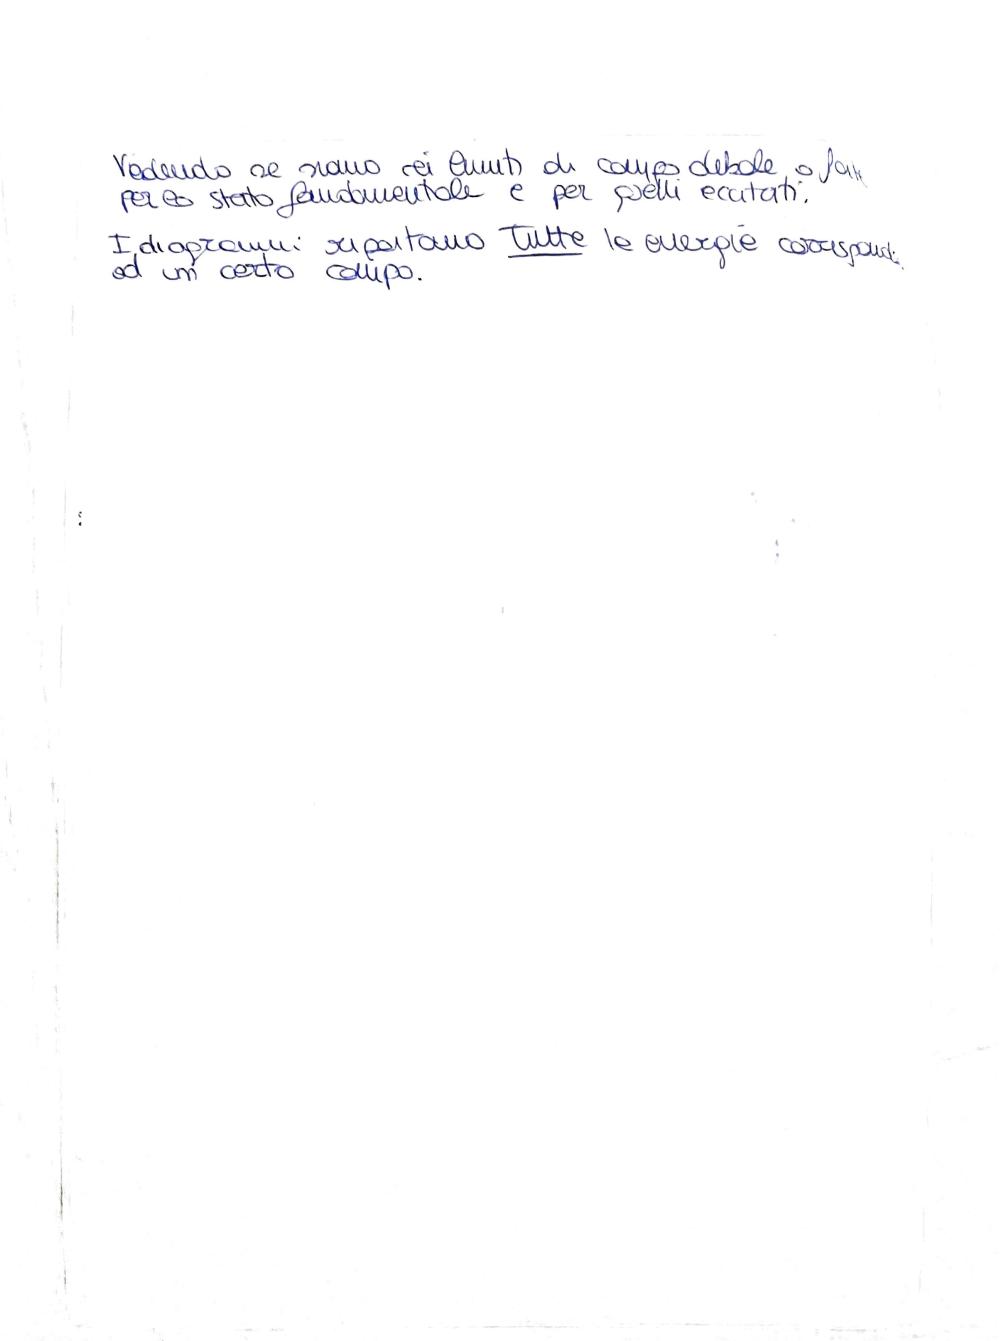 Vedendo se siamo nei limiti di campo debole o
per lo stato fondamentale e per quelli eccitati.
I diagrammi riportano TUTTE le energie
ad un certo campo.